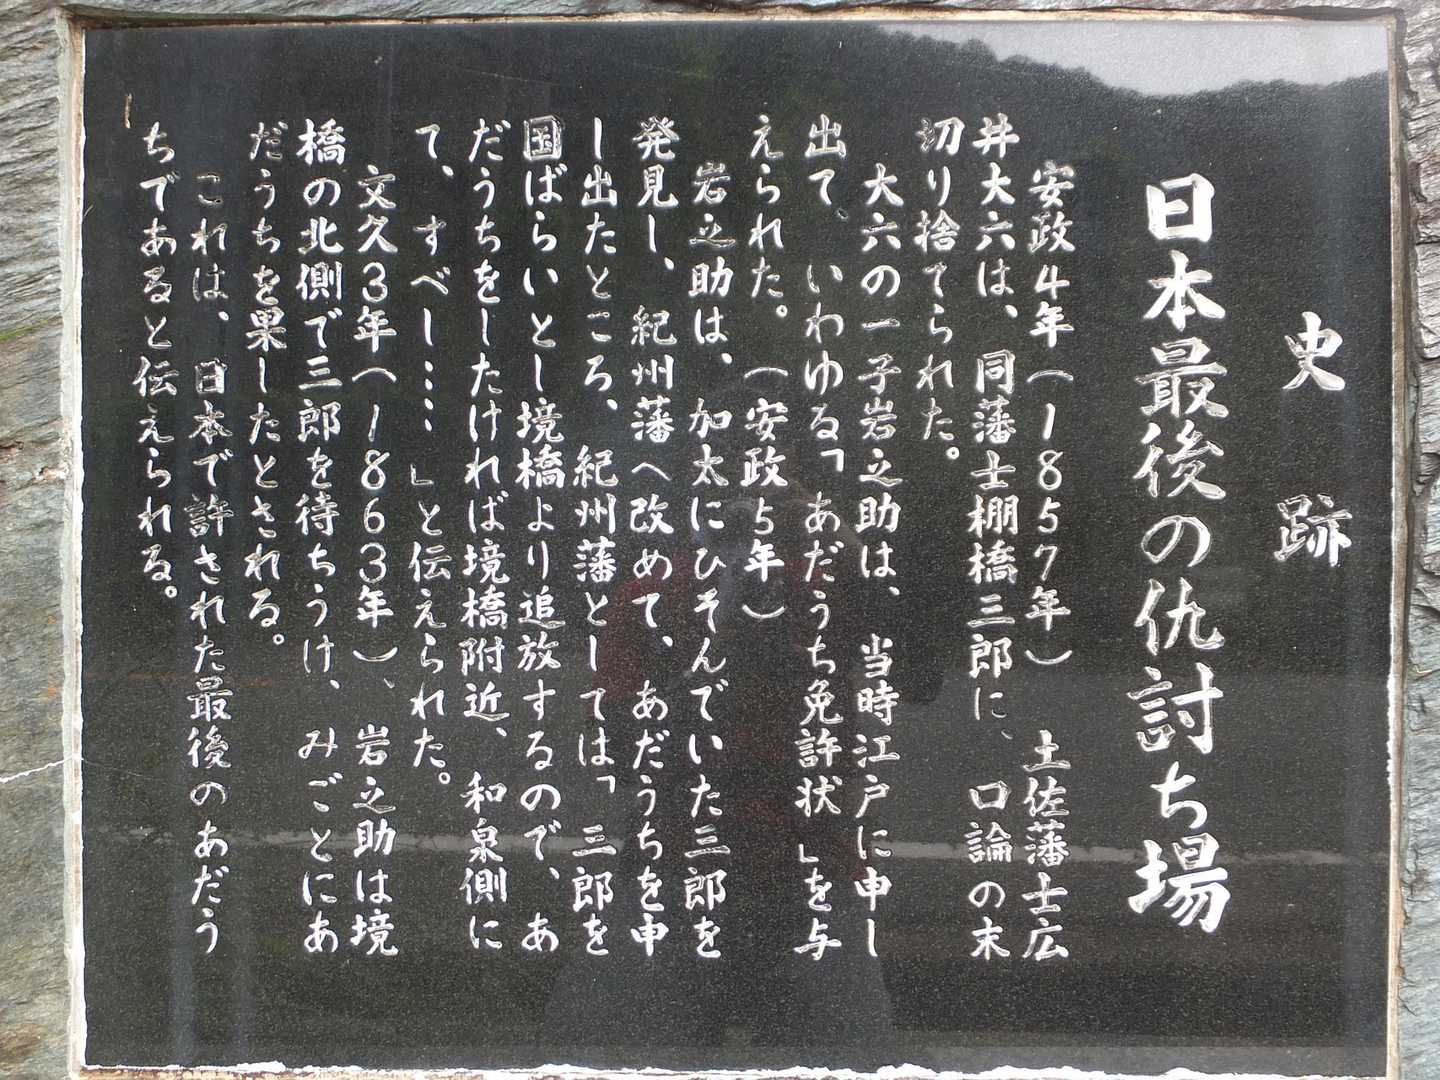 史跡
日本最後の仇討ち場
安政4年(1857年) 土佐藩士広
井大六は、同藩士棚橋三郎に、口論の末
切り捨てられた。
大六の一子岩之助は、当時江戸に申し
出て、いわゆる「あだうち免許状」を与
えられた。(安政5年)
岩之助は、加太にひそんでいた三郎を
発見し、紀州藩へ改めて、あだうちを申
し出たところ、紀州藩としては「三郎を
国ばらいとし境橋より追放するので、あ
だうちをしたければ境橋附近、和泉側に
て、すべし……」と伝えられた。
文久3年(1863年)、岩之助は境
橋の北側で三郎を待ちうけ、みごとにあ
だうちを果したとされる。
これは、日本で許された最後のあだう
ちであると伝えられる。